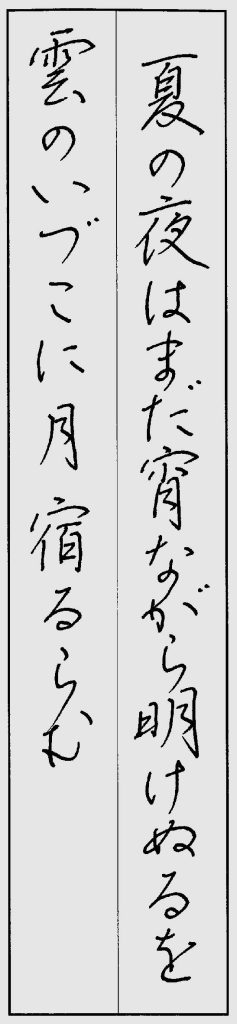 夏の夜はまだ宵ながら明けぬるを
雲のいづこに月宿るらむ